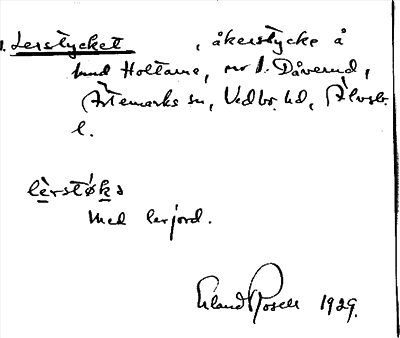 1. Lerstycket, åkerstycke å
Holtarne, nr 1. Dåverud,
Ärtemarks sn, Vedbo hd, Älvsb.
l.
lèrstøka
med lerjord.
Erland Rosell 1929.